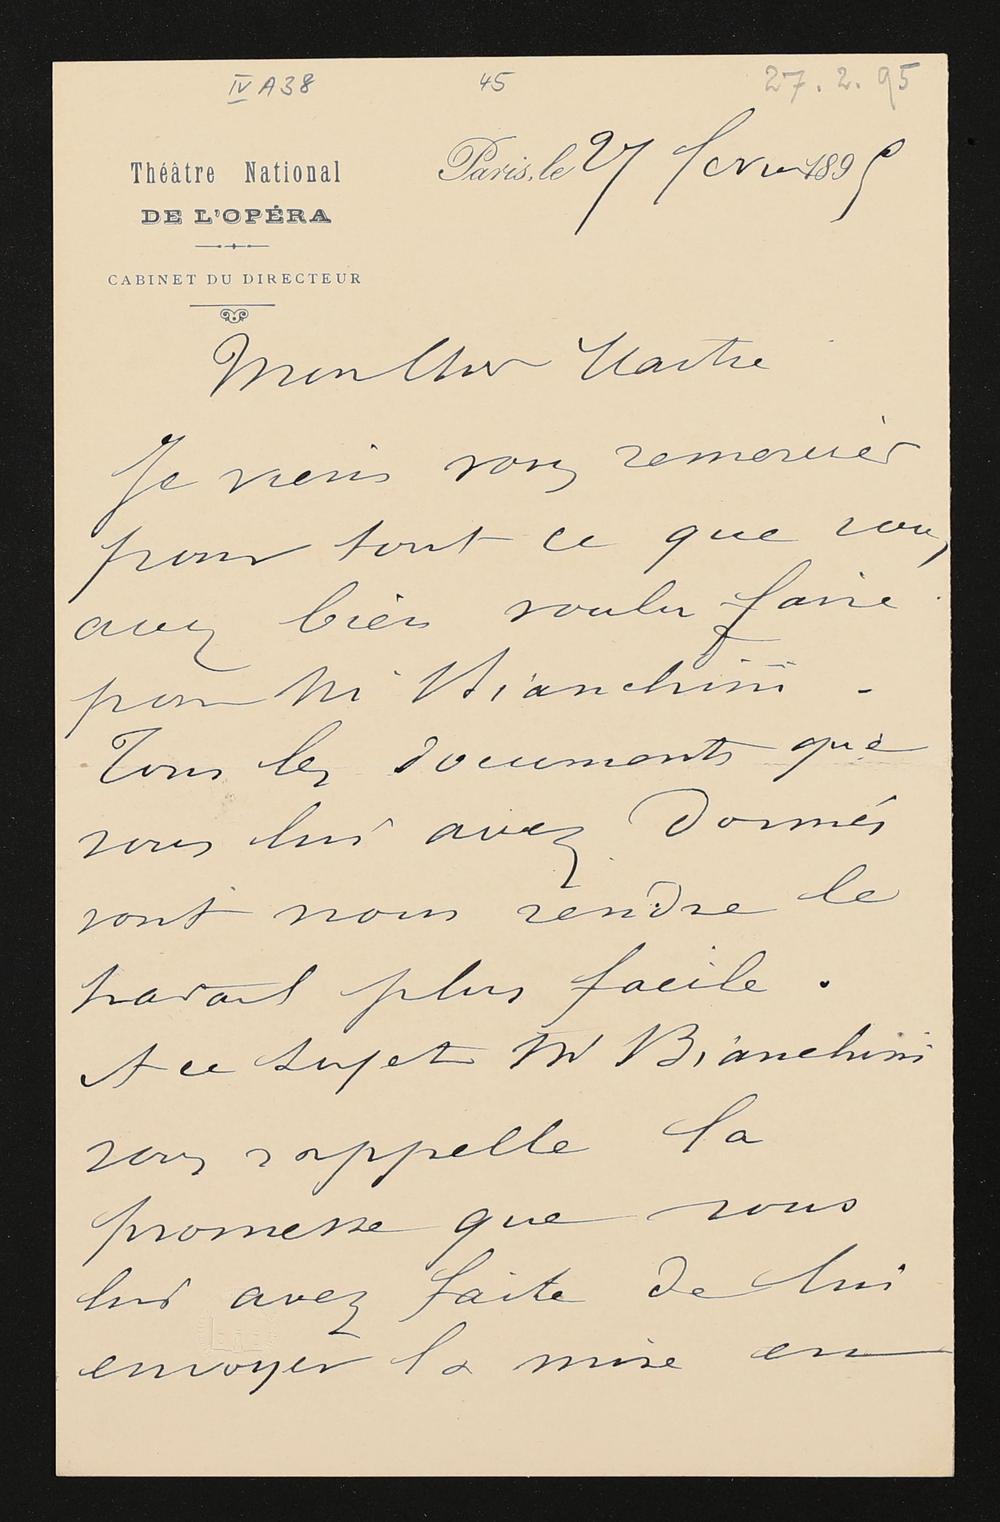 IV A38 45 27.2.95
Théâtre National
DE L'OPÉRA
CABINET DU DIRECTEUR
Paris, le 27 fevrier 1895
Mon Cher Maitre
Je viens vous remercier
pour tout ce que vous
avez bien voulu faire
pour Mr Bianchini -
Tous les documents que
vous lui avez donnés
vont nous rendre le
travail plus facile.
A ce sujet Mr Bianchini
vous rappelle la
promesse que vous
lui avez faite de lui
envoyer la mise en